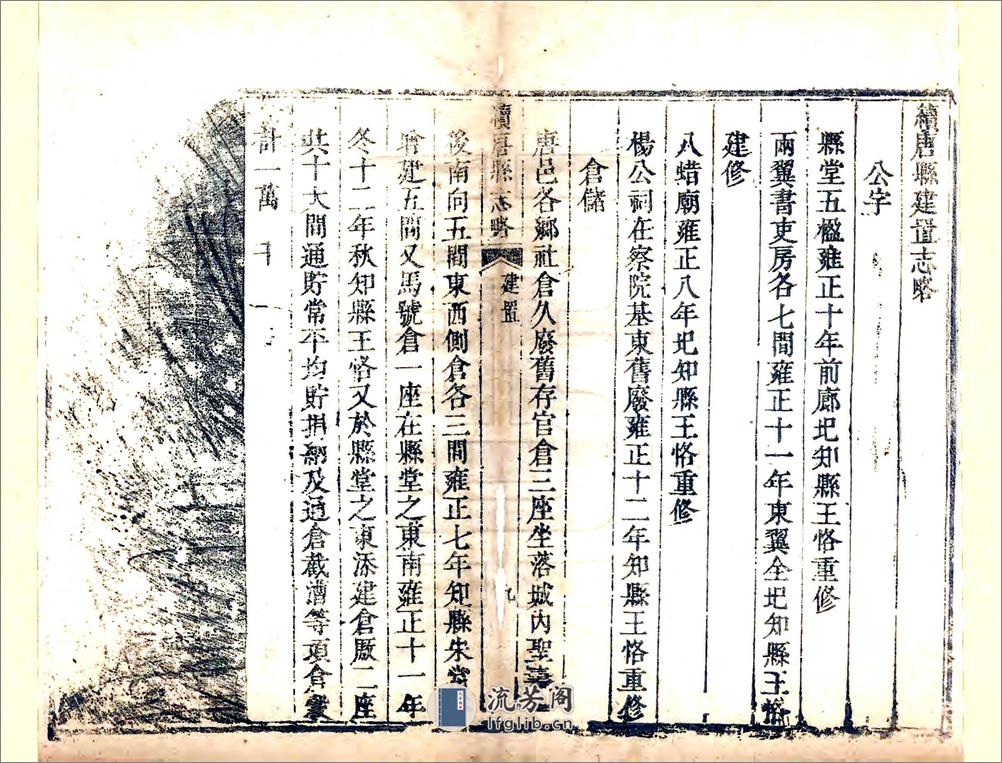 續唐縣建置志略
公字
縣堂五楹雍正十年前廊圯知縣王恪重修
兩翼書吏房各七間雍正十一年東翼全圯知縣王恪
建修
八蜡廟雍正八年圯知縣王恪重修
楊公祠在察院基東舊廢雍正十二年知縣王恪重修
倉儲
唐邑各鄉社倉久廢舊存官倉三座坐落城內聖
續唐縣志略 建置 九
後南向五間東西側倉各三間雍正七年知縣朱
曾建五間又馬號倉一座在縣堂之東南雍正十一年
冬十二年秋知縣王恪又於縣堂之東添建倉厫二座
共十大間通貯常平均貯捐納及通倉截漕等項倉
計一萬
流芳阁
lfglib.cn